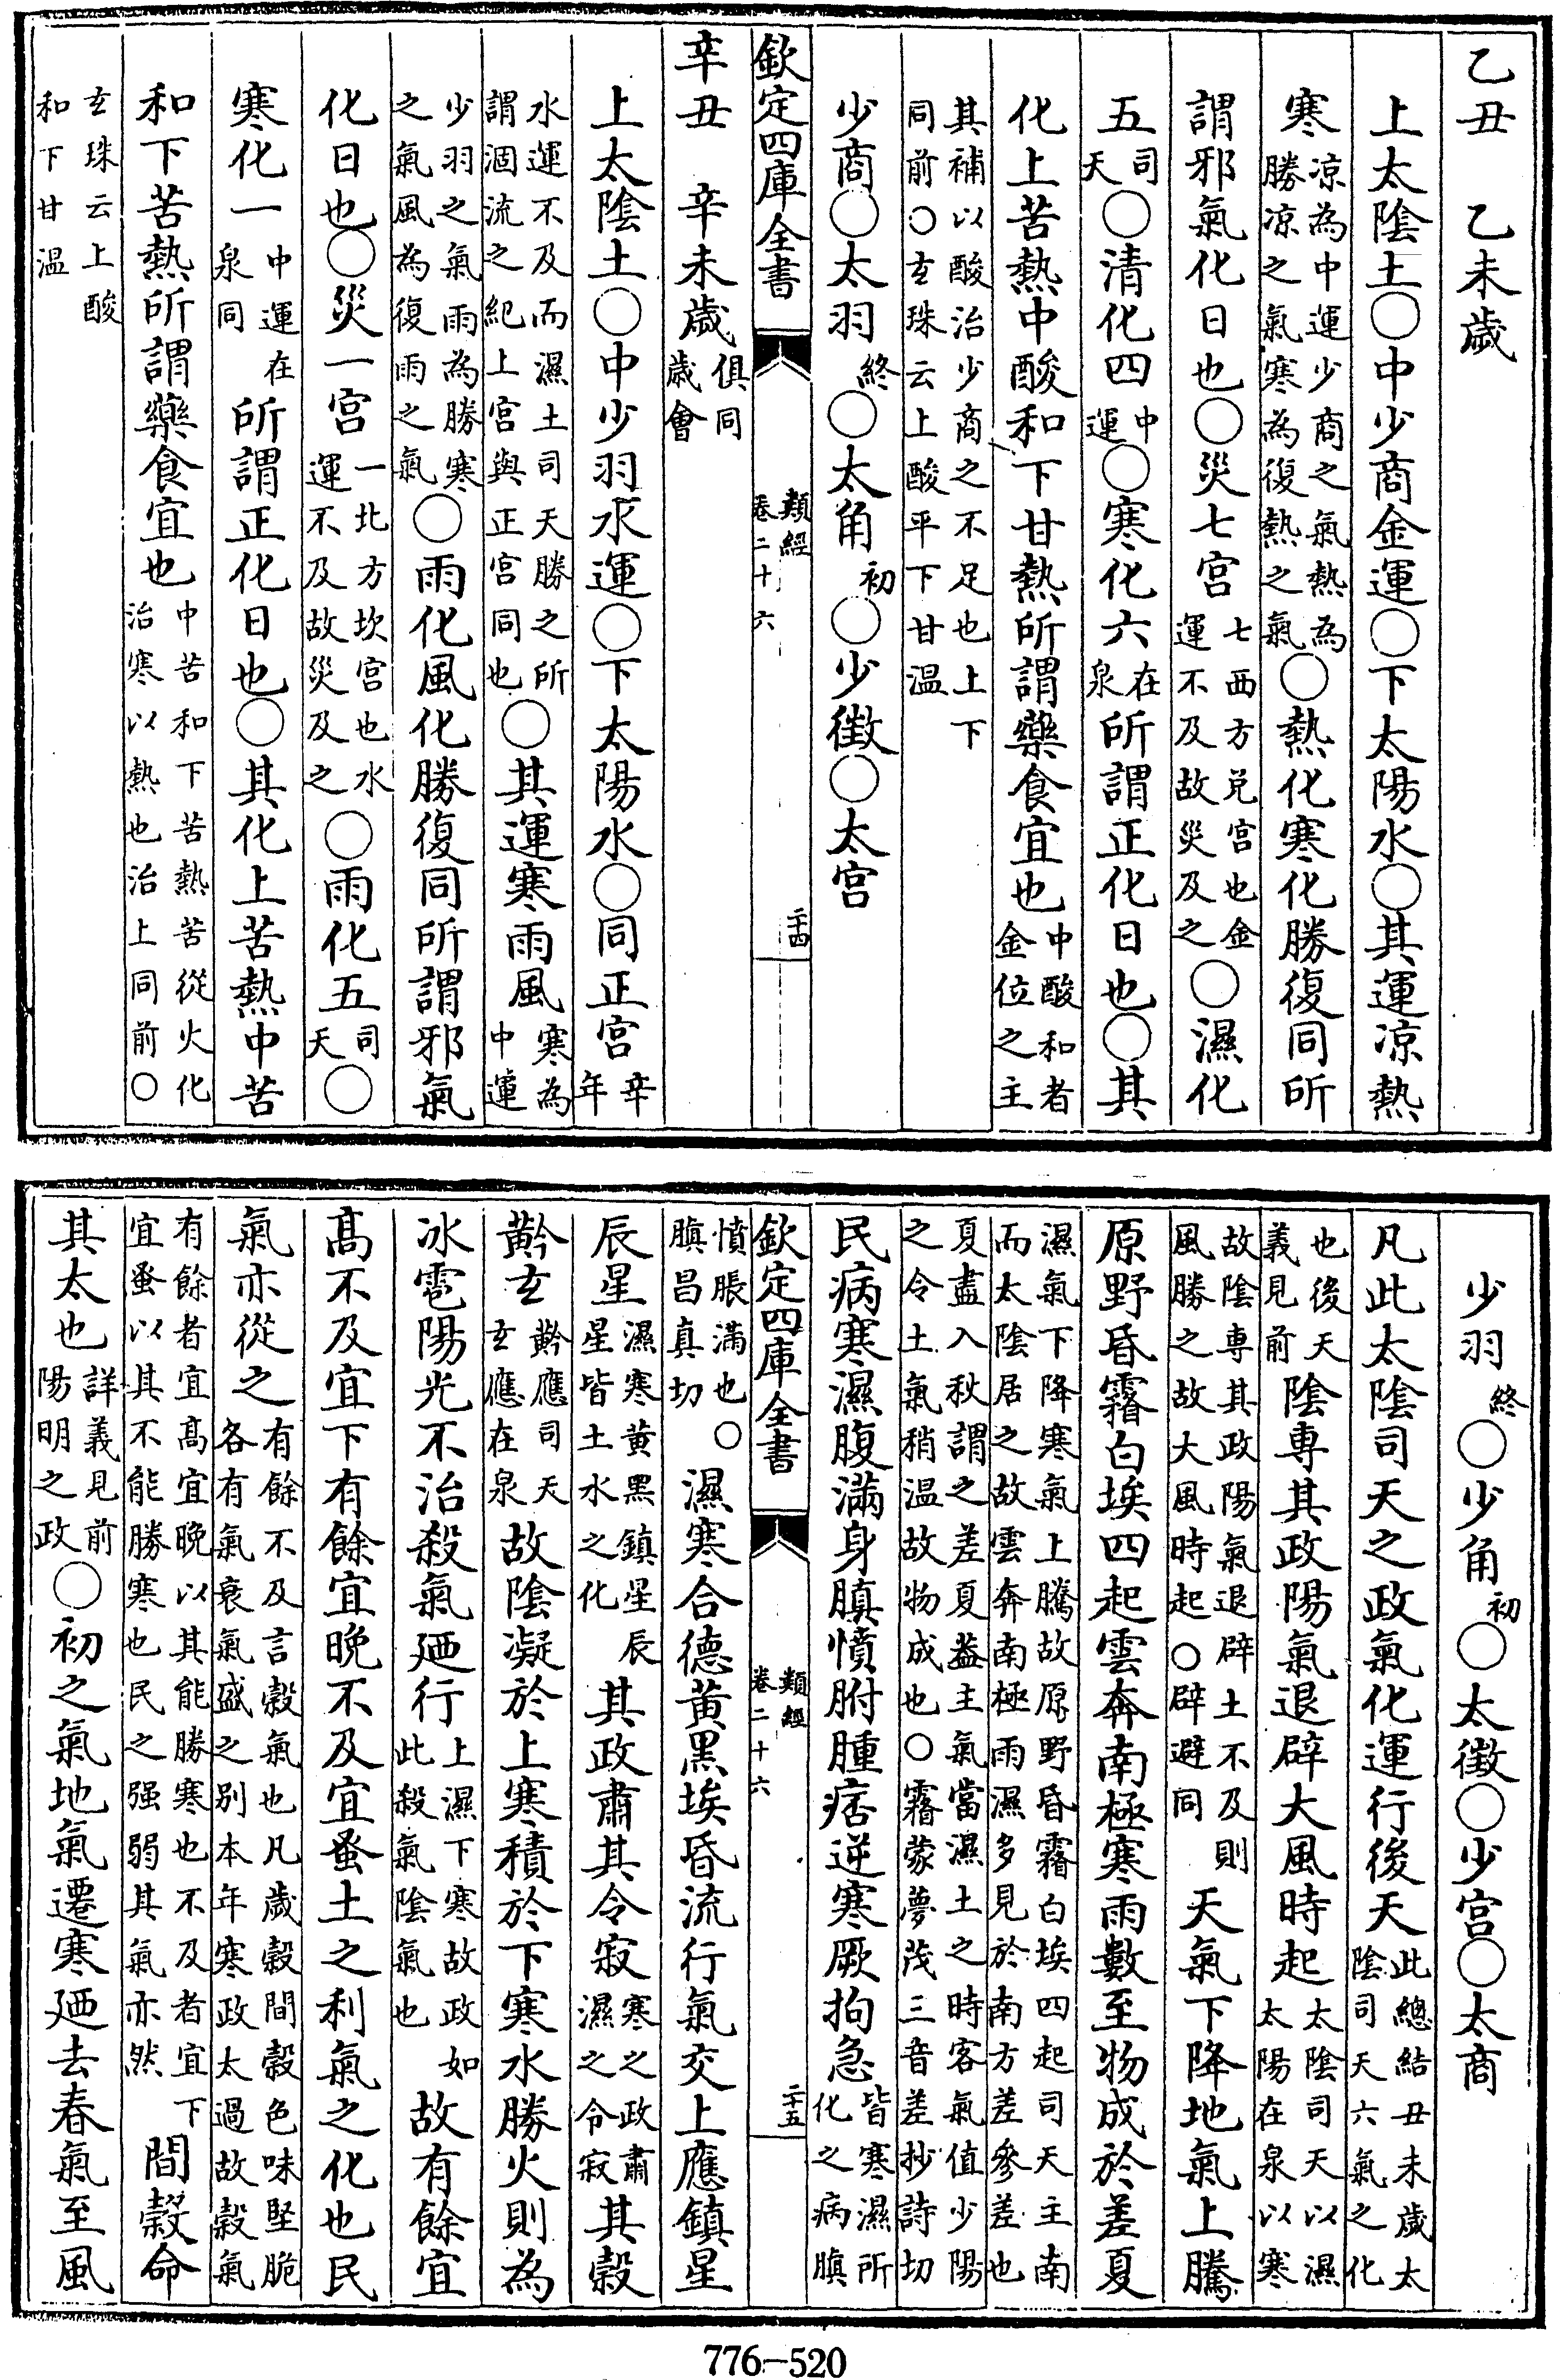 乙丑　乙未歲
上太陰土○中少商金運○下太陽水○其運凉熱
寒凉為中運少商之氣熱為勝凉之氣寒為復熱之氣○熱化寒化勝復同所
謂邪氣化日也○災七宫七西方兌宫也金運不及故災及之○濕化
五司天○清化四中運○寒化六在泉所謂正化日也○其
化上苦熱中酸和下甘熱所謂藥食宜也中酸和者金位之主
其補以酸治少商之不足也上下同前○玄珠云上酸平下甘温
少商○太羽終○太角初○少徵○太宫
欽定四庫全書　類經卷二十六　二十四
辛丑　辛未歲俱同歲會
上太陰土○中少羽水運○下太陽水○同正宫辛年
水運不及而濕土司天勝之所謂涸流之紀上宫與正宫同也○其運寒雨風寒為中運
少羽之氣雨為勝寒之氣風為復雨之氣○雨化風化勝復同所謂邪氣
化日也○災一宫一北方坎宫也水運不及故災及之○雨化五司天○
寒化一中運在泉同所謂正化日也○其化上苦熱中苦
和下苦熱所謂藥食宜也中苦和下苦熱苦從火化治寒以熱也治上同前○
玄珠云上酸和下甘温
少羽終○少角初○太徵○少宫○太商
凡此太陰司天之政氣化運行後天此總結丑未歲太陰司天六氣之化
也後天義見前陰専其政陽氣退辟大風時起太陰司天以濕太陽在泉以寒
故陰専其政陽氣退辟土不及則風勝之故大風時起○辟避同天氣下降地氣上騰
原野昏霿白埃四起雲奔南極寒雨數至物成於差夏
濕氣下降寒氣上騰故原野昏霿白埃四起司天主南而太陰居之故雲奔南極雨濕多見於南方差參差也
夏盡入秋謂之差夏葢主氣當濕土之時客氣值少陽之令土氣稍温故物成也○霿蒙夢茂三音差抄詩切
民病寒濕腹滿身䐜憤胕腫痞逆寒厥拘急皆寒濕所化之病䐜
欽定四庫全書　類經卷二十六　二十五
憤脹滿也○䐜昌真切濕寒合德黄黑埃昏流行氣交上應鎮星
辰星濕寒黄黑鎮星辰星皆土水之化其政肅其令寂寒之政肅濕之令寂其穀
黅玄黅應司天玄應在泉故陰凝於上寒積於下寒水勝火則為
冰雹陽光不治殺氣廼行上濕下寒故政如此殺氣陰氣也故有餘宜
髙不及宜下有餘宜晚不及宜蚤土之利氣之化也民
氣亦從之有餘不及言穀氣也凡歲穀間穀色味堅脆各有氣衰氣盛之别本年寒政太過故穀氣
有餘者宜髙宜晚以其能勝寒也不及者宜下宜蚤以其不能勝寒也民之强弱其氣亦然間穀命
其太也詳義見前陽明之政○初之氣地氣遷寒廼去春氣至風
776-520